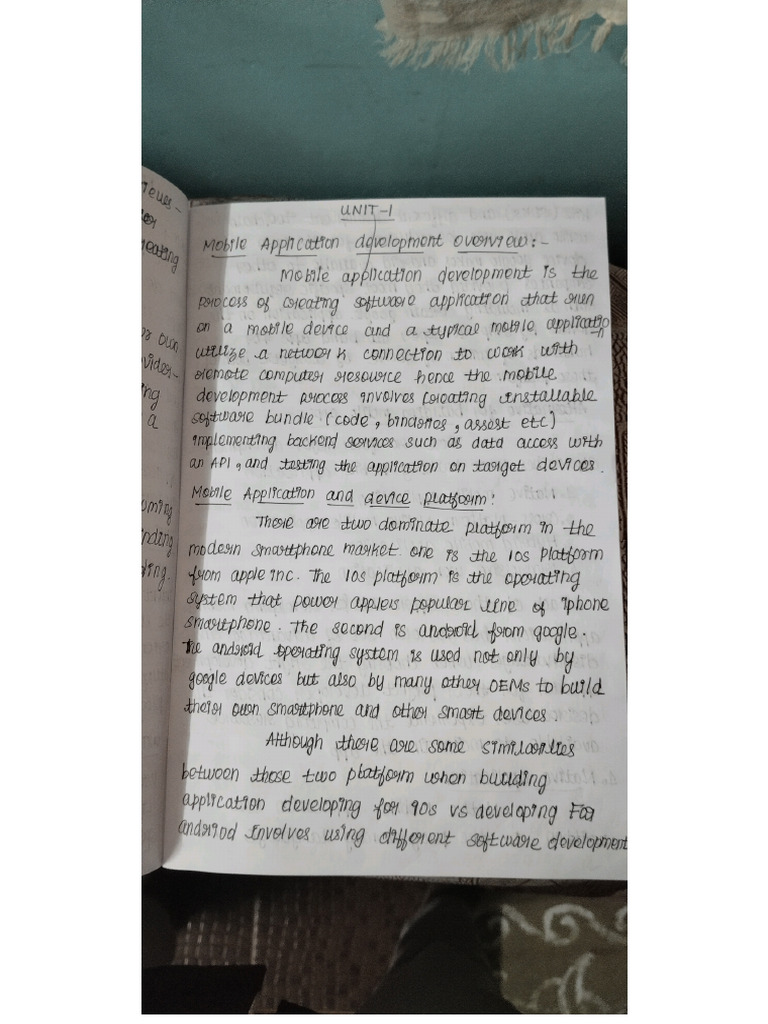 UNIT-1
Mobile Application development overview:-
Mobile application development is the
process of creating software application that run
on a mobile device and a typical mobile application
utilize a network connection to work with
remote computer resource hence the mobile
development process involves creating installable
software bundle (code, binaries, assest etc)
implementing backend services such as data access with
an API, and testing the application on target devices.
Mobile Application and device platform:
There are two dominate platform in the
modern smartphone market. one is the IOS platform
from apple inc. The IOS platform is the operating
system that power apples popular line of iphone
smartphone. The second is android from google.
The android operating system is used not only by
google devices but also by many other OEMs to build
their own smartphone and other smart devices.
Although there are some similarities
between those two platform when building
application developing for IOS vs developing For
andriod Involves using different software development
own
ing
a